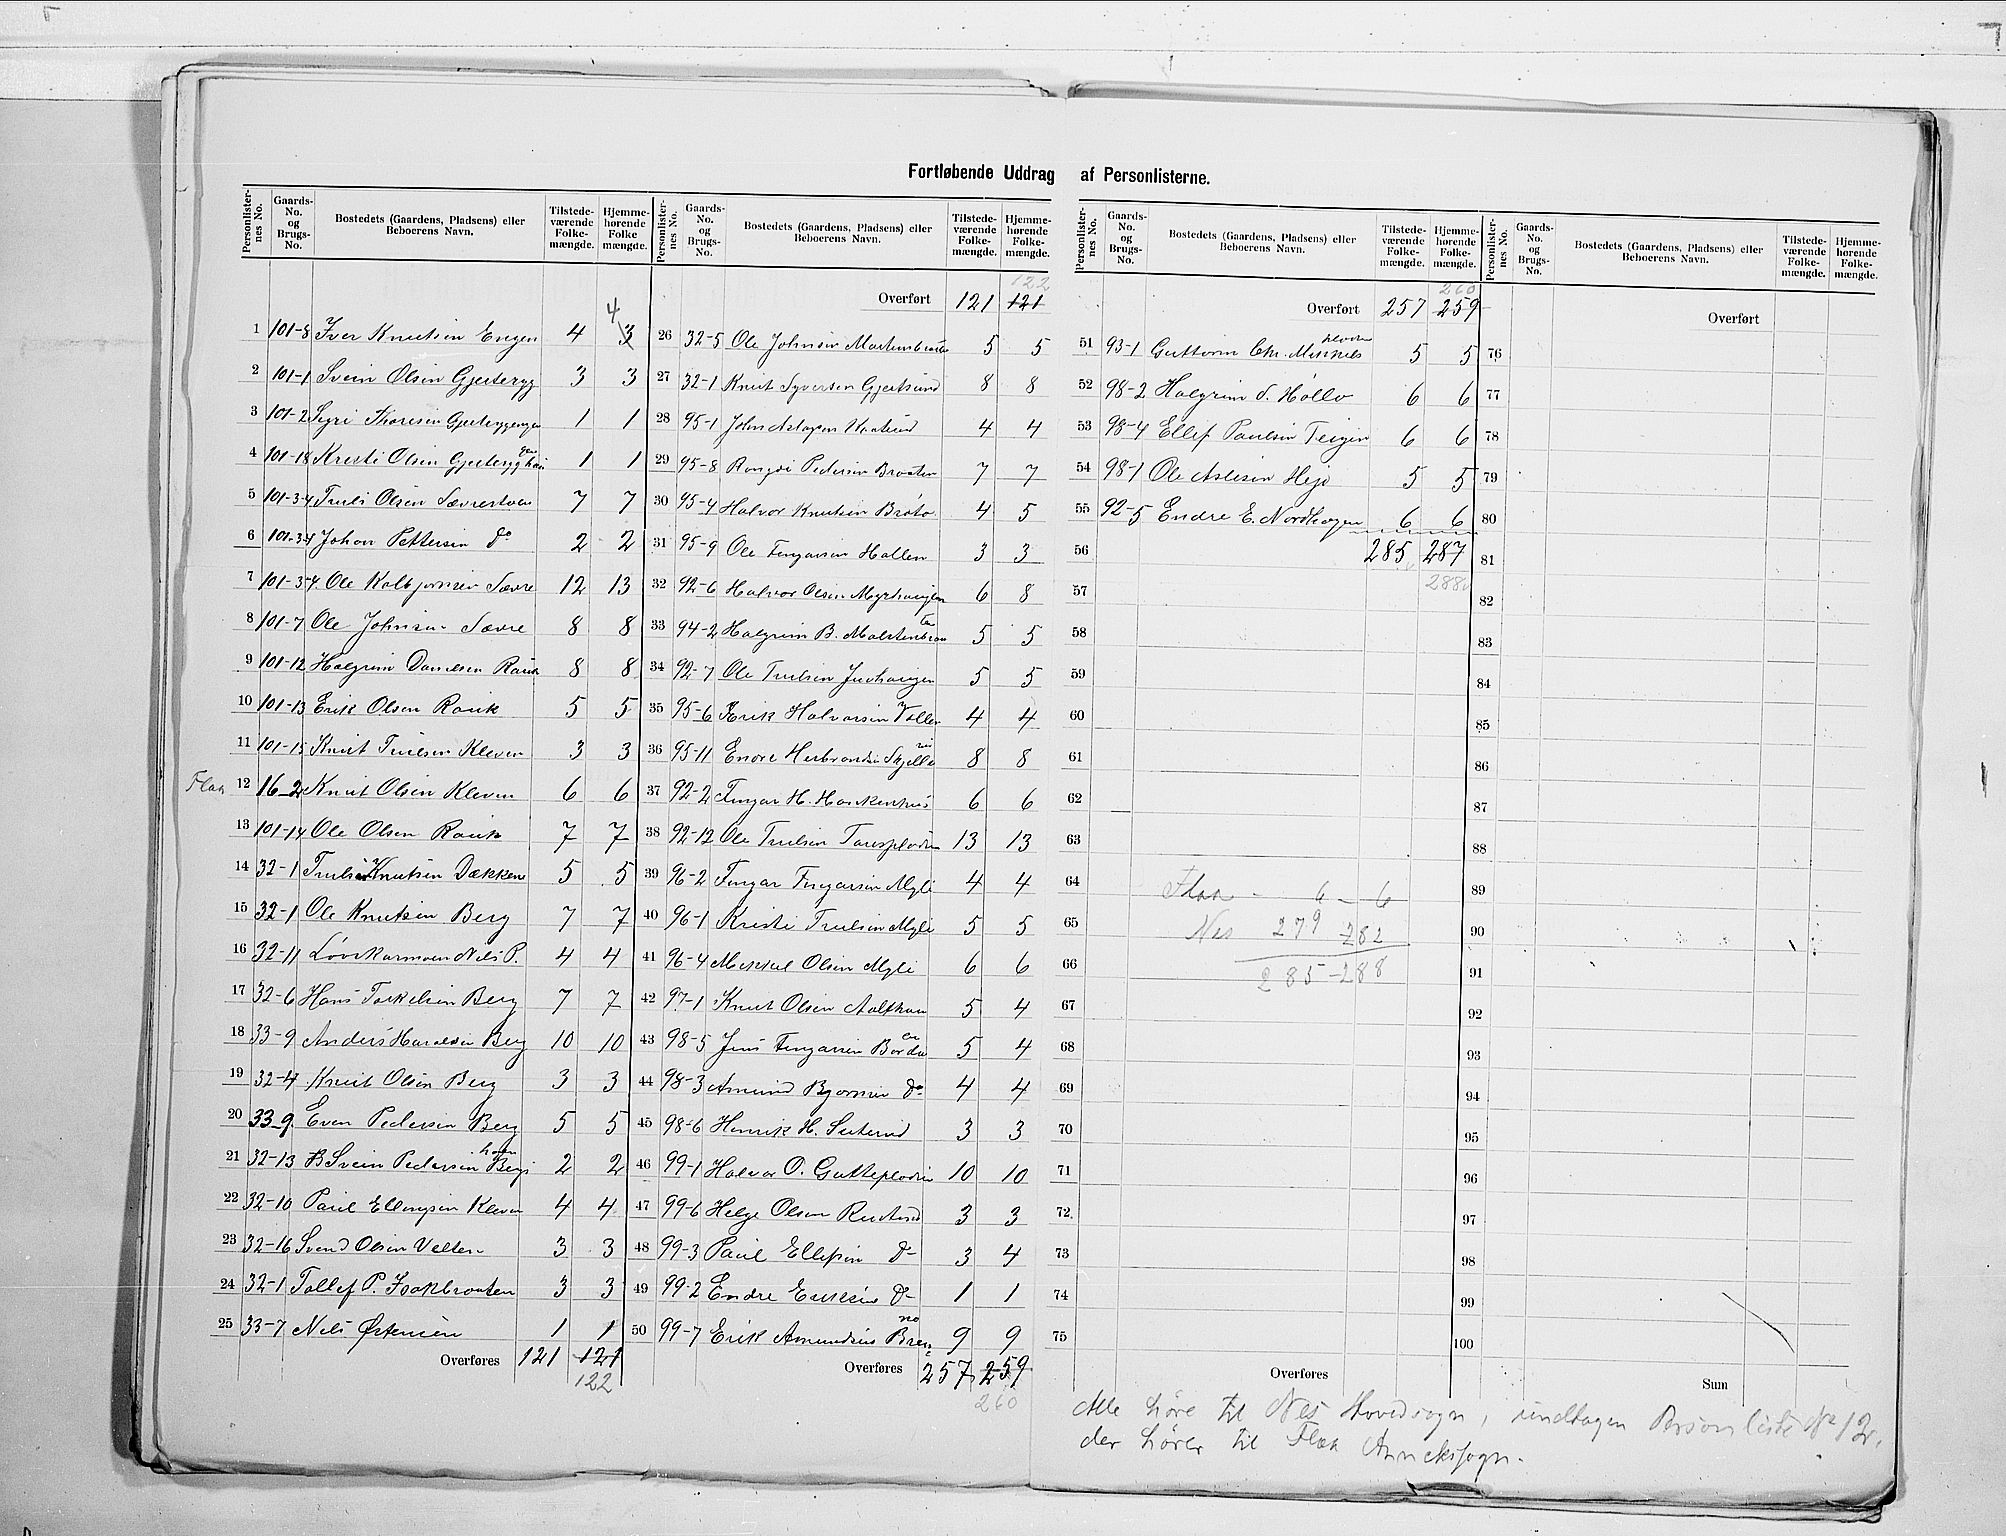 Fortløbende Uddrag af Personlisterne.
Personlister-nes No. Gaards-No. og Brugs-No. Bostedets (Gaardens, Pladsens) eller Beboerens Navn. Tilstede-værende Folke-mængde. Hjemme-hørende Folke mængde.
4
1 101-8 Iver Knutsen Engen 4 3
2 101-1 Svein Olsen Gjerteryg 3 3
3 101-2 Sigri Thoresen 1 1
4 101-18 Kristi Olsen 1 1
5 101-3-4 Truls Olsen 7 7
6 101-3-4 Johan Pettersen Do 2 2
7 101-3-4 Ole Kolbjørnsen Sævre 12 13
8 101-7 Ole Johnsen Sævre 8 8
9 101-12 Halgrim Danielsen Rauk 8 8
10 101-13 Erik Olsen Rauk 5 5
11 101-15 Knut Trulsen Kleven 3 3
Flaa 12 16-2 Knut Olsen Kleven 6 6
13 101-14 Ole Olsen Rauk 7 7
14 32-1 Truls Knutsen Dækken 5 5
15 32-1 Ole Knutsen Berg 7 7
16 32-11 Nils P. 4 4
17 32-6 Hans Torkelsen Berg 7 7
18 33-9 Anders Haraldsen Berg 10 10
19 32-4 Knut Olsen Berg 3 3
20 33-9 Even Pedersen Berg 5 5
21 32-13 Svein Pedersen Berg 2 2
22 32-10 Paul Ellingsen Kleven 4 4
23 32-16 Svend Olsen Velten 3 3
24 32-1 Tollef P. Isakbraaten 3 3
25 33-7 Nils Østensen 1 1
Overføres 121 121
122
Personlister-nes No. Gaards-No. og Brugs-No. Bostedets (Gaardens, Pladsens) eller Beboerens Navn. Tilstede-værende Folke-mængde. Hjemme-hørende Folke-mængde.
122
Overført 121 121
26 32-5 Ole Johnsen 5 5
27 32-1 Knut Syversen Gjertsund 8 8
28 95-1 John Aslagsen 4 4
29 95-8 Rangdi Pedersen Braaten 7 7
30 95-4 Halvor Knutsen Bråto 4 5
31 95-9 Ole Fingarsen Hallen 3 3
32 92-6 Halvor Olsen Myrhaugen 6 8
33 94-2 Halgrim B. 5 5
34 92-7 Ole Trulsen Juvhaugen 5 5
35 95-6 Erik Halvorsen Vollen 4 4
36 95-11 Endre Herbrandsen 8 8
37 92-2 Fingar H. Haukenhus 6 6
38 92-12 Ole Trulsen 13 13
39 96-2 Fingar Fingarsen Myli 4 4
40 96-1 Kristi Trulsen Myli 5 5
41 96-4 Mikkel Olsen Myli 6 6
42 97-1 Knut Olsen 5 4
43 98-5 Jens Fingarsen 5 4
44 98-3 Amund Bjørnsen Do 4 4
45 98-6 Henrik H. 3 3
46 99-1 Halvor O. Gutteplodsen 10 10
47 99-6 Helge Olsen Rustand 3 3
48 99-3 Paul Ellefsen D- 3 4
49 99-2 Endre Eriksen D- 1 1
50 99-7 Erik Amundsen 9 9
Overføres 257 259
260
Personlister-nes No. Gaards-No. og Brugs-No. Bostedets (Gaardens, Pladsens) eller Beboerens Navn. Tilstede-værende Folke-mængde. Hjemme-hørende Folke-mængde.
260
Overført 257 259
51 93-1 Guttorm Chr. 5 5
52 98-2 Halgrim S. Høllo 6 6
53 98-4 Ellef Paulsen Teigen 6 6
54 98-1 Ole Aslesen Hejo 5 5
55 92-5 Endre E. Nordhagen 6 6
56 285 287
288
57
58
59
60
61
62
63
64 Flaa - 6 - 6
65 Nes 279 - 282
66 285 - 288
67
68
69
70
71
72
73
74
75
Overføres
Personlister-nes No. Gaards-No. og Brugs-No. Bostedets (Gaardens, Pladsens) eller Beboerens Navn. Tilstede-værende Folke-mængde. Hjemme-hørende Folke-mængde.
Overført
76
77
78
79
80
81
82
83
84
85
86
87
88
89
90
91
92
93
94
95
96
97
98
99
100
Sum
Alle høre til Nes Hovedsogn, undtagen Personliste No 12,
der hører til Flaa Annekssogn.